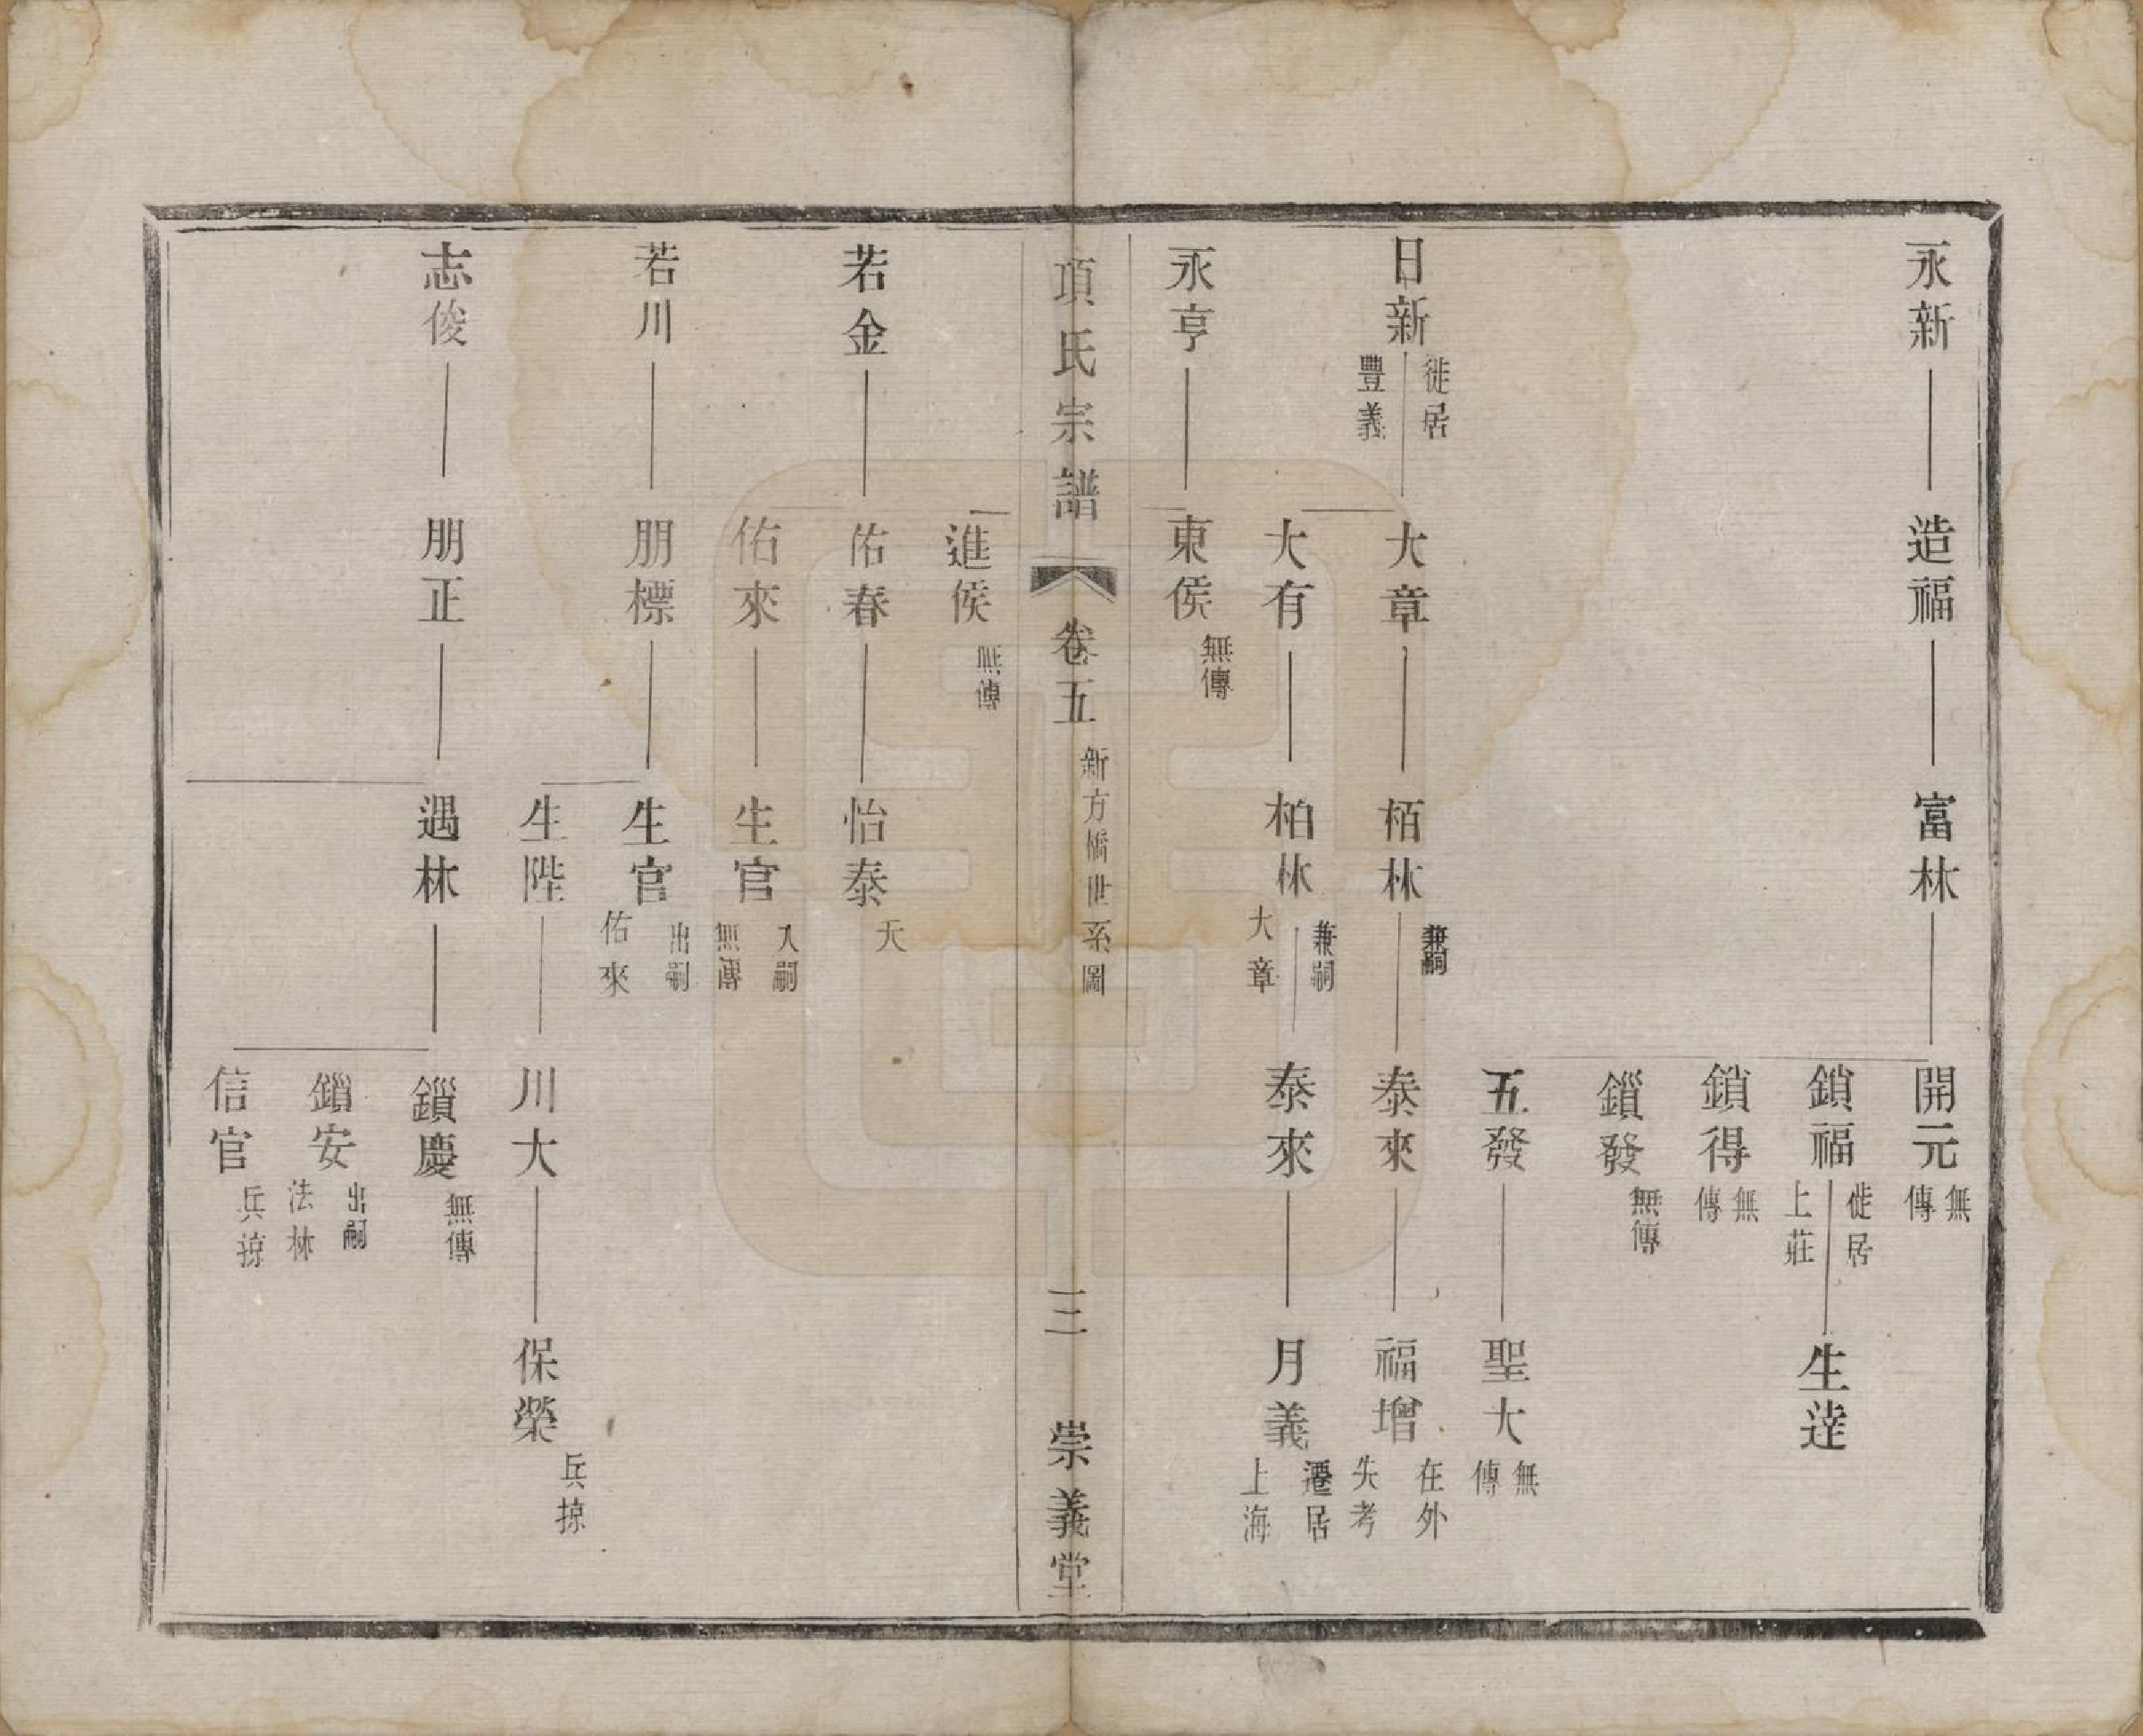 永新
造福
富林
開元 無傳
鎖福 徙居上莊
生達
鎖得 無傳
鎖發 無傳
五發
聖大 無傳
日新 徙居豐義
大章
栢林 兼嗣
泰來
福增 在外失考
大有
柏林 兼嗣大章
泰來
月義 遷居上海
永亨
東侯 無傳
項氏宗譜 卷五 新方橋世系圖 三 崇義堂
進侯 無傳
若金
佑春
怡泰 夭
佑來
生官 入嗣無傳
若川
朋標
生官 出嗣佑來
生陛
川大
保榮 兵掠
志俊
朋正
遇林
鎖慶 無傳
鎖安 出嗣法林
信官 兵掠